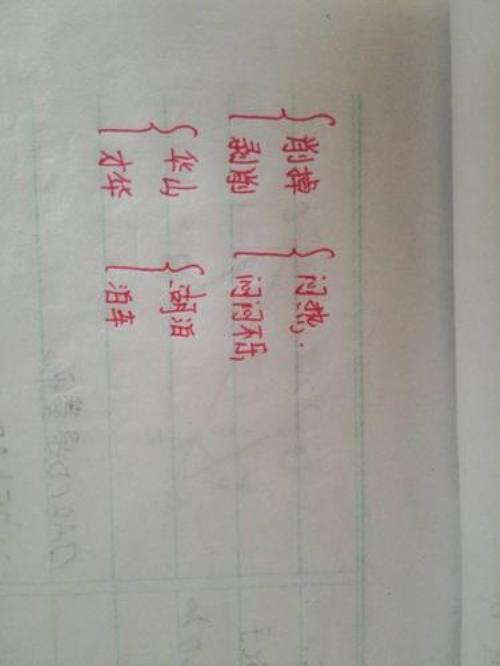 削掉 闷热
剥削 闷闷不乐
华山 湖泊
才华 泊车